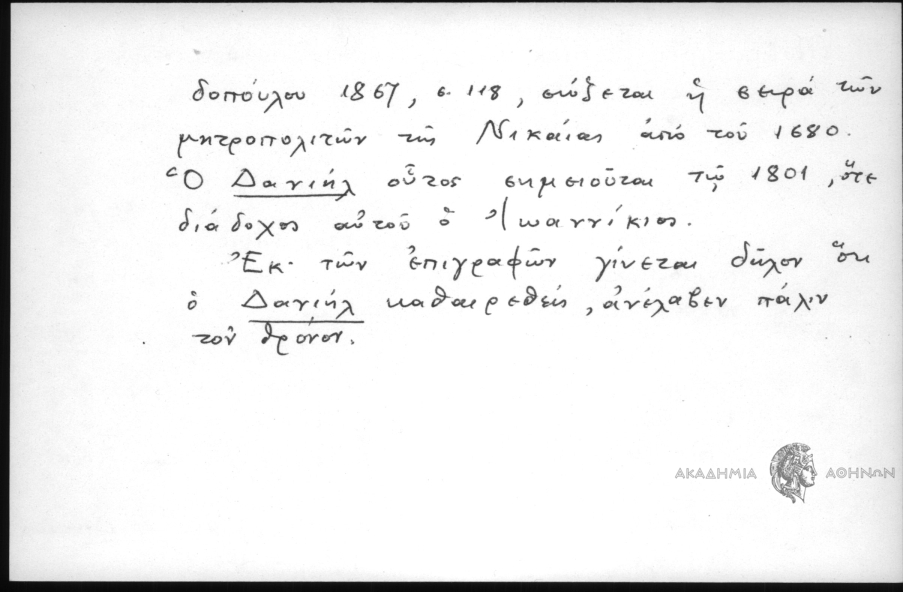 δοπούλου 1867, σ. 118, σώζεται ἡ σειρά τῶν
μητροπολιτῶν τῆς Νικαίας ἀπό τοῦ 1680.
Ὁ Δανιήλ οὗτος σημειοῦται τῷ 1801, ὅτε
διάδοχος αὐτοῦ ὁ Ἰωαννίκιος.
Ἐκ τῶν ἐπιγραφῶν γίνεται δῆλον ὅτι
ὁ Δανιήλ καθαιρεθείς, ἀνέλαβεν πάλιν
τόν θρόνον.
ΑΚΑΔΗΜΙΑ ΑΘΗΝΩΝ